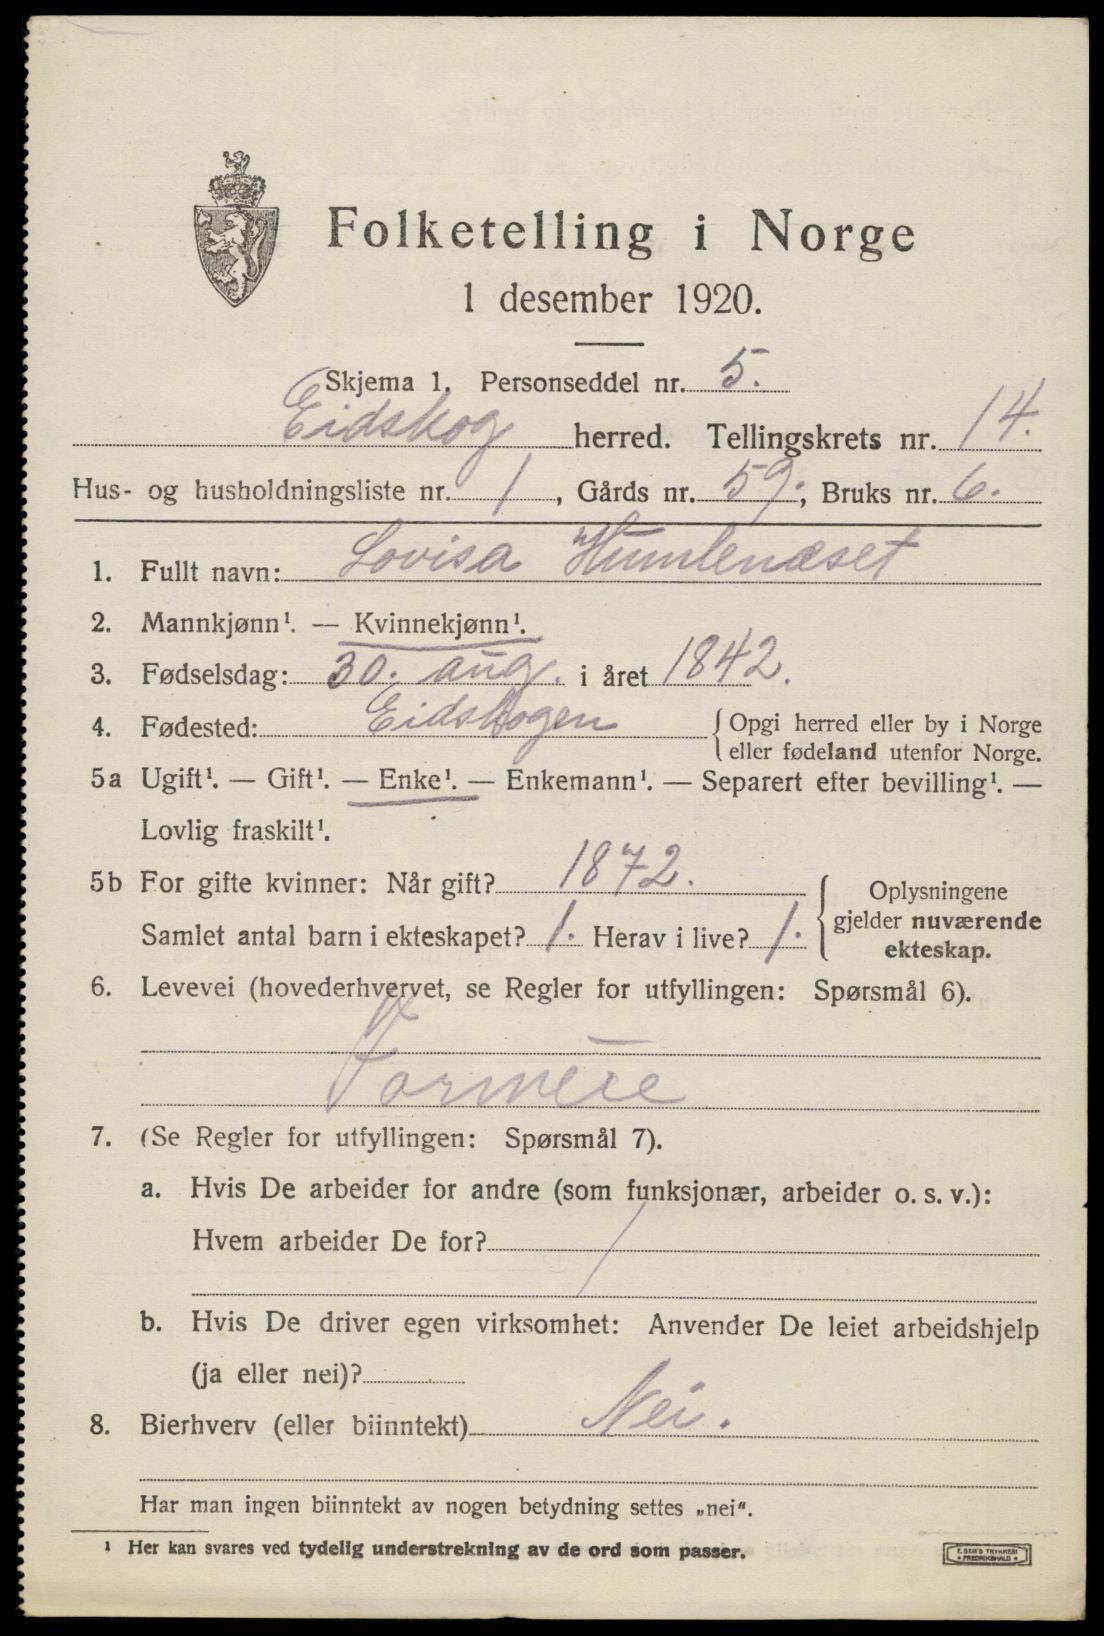 Folketelling i Norge
1 desember 1920.
Skjema 1. Personseddel nr. 5.
Eidskog herred. Tellingskrets nr. 14.
Hus- og husholdningsliste nr. 1, Gårds nr. 59., Bruks nr. 6.
1. Fullt navn: Lovisa Humlenæset
2. Mannkjønn¹. — Kvinnekjønn¹.
3. Fødselsdag: 30. aug. i året 1842.
4. Fødested: Eidskogen { Opgi herred eller by i Norge
eller fødeland utenfor Norge.
5a Ugift¹. — Gift¹. — Enke¹. — Enkemann¹. — Separert efter bevilling¹. —
Lovlig fraskilt¹.
5b For gifte kvinner: Når gift? 1872.
Samlet antal barn i ekteskapet? 1. Herav i live? 1.
{ Oplysningene
gjelder nuværende
ekteskap.
6. Levevei (hovederhvervet, se Regler for utfyllingen: Spørsmål 6).
Formue
7. (Se Regler for utfyllingen: Spørsmål 7).
a. Hvis De arbeider for andre (som funksjonær, arbeider o. s. v.):
Hvem arbeider De for? /
b. Hvis De driver egen virksomhet: Anvender De leiet arbeidshjelp
(ja eller nei)?
8. Bierhverv (eller biinntekt) Nei.
Har man ingen biinntekt av nogen betydning settes „nei".
¹ Her kan svares ved tydelig understrekning av de ord som passer.